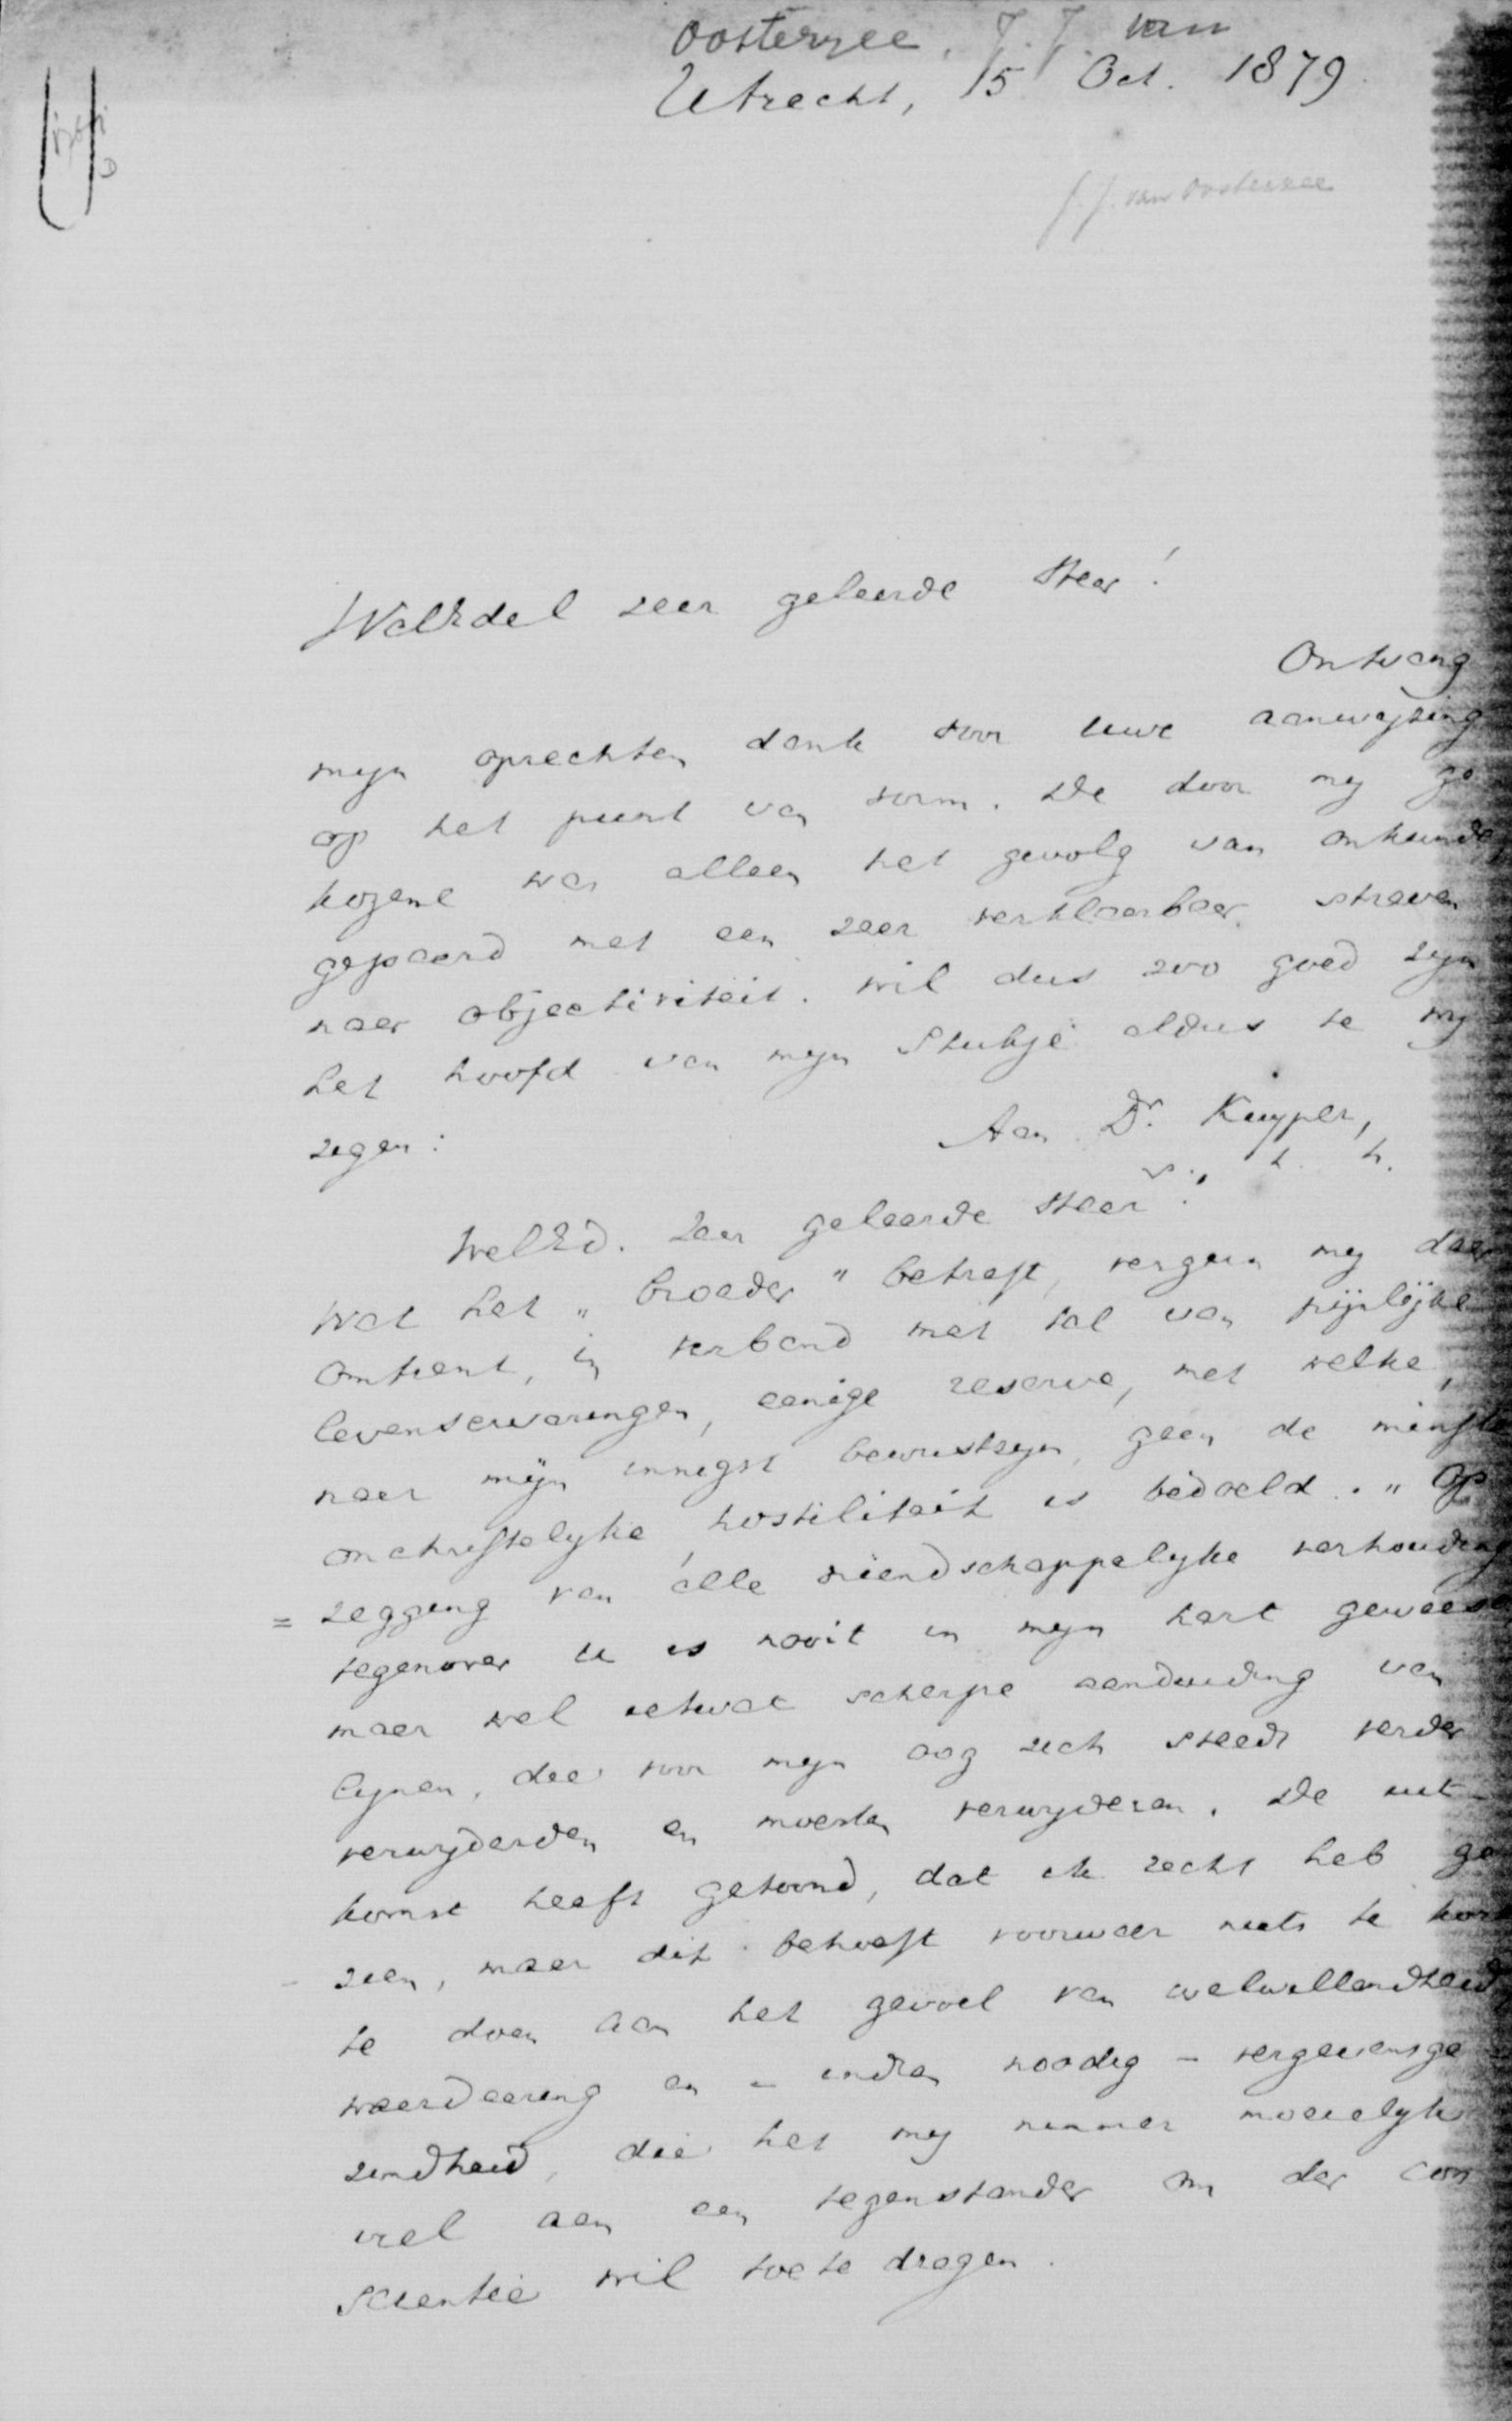 Oosterzee, J. J. van
Utrecht, 15 Oct. 1879
J. J. van Oosterzee
WelEdel zeer geleerde Heer!
Ontvang
mijn oprechten dank voor uwe aanwijzing
op het punt van vorm. De door mij ge
kozene was alleen het gevolg van onkunde,
gepaard met een zeer verklaarbaar streven
naar objectiviteit. Wil dus zoo goed zijn
het hoofd van mijn Stukje aldus te wij
zigen:
Aan Dr. Kuyper,
WelEd. Zeer geleerde Heer!
Wat het "broeder" betreft, vergun mij daar
omtrent, in verband met tal van pijnlijke
levenservaringen, eenige reserve, met welke,
naar mijn innigst bewustzijn, geen de minste
onchristelijke hostiliteit is bedoeld. "Op
= zegging van álle vriendschappelijke verhouding
tegenover U is nooit in mijn hart geweest
maar wel ietwat scherpe aanduiding van
lijnen, die voor mijn oog zich steeds verder
verwijderden en moesten verwijderen. De uit-
komst heeft getoond, dat ik recht heb ge
- zien, maar dit behoeft voorwaar niets te kort
te doen aan het gevoel van welwillendheid
waardeering en - indien noodig - vergevensge-
zindheid, die het mij nimmer moeielijk
viel aan een tegenstander om der con
scientie wil toe te dragen.